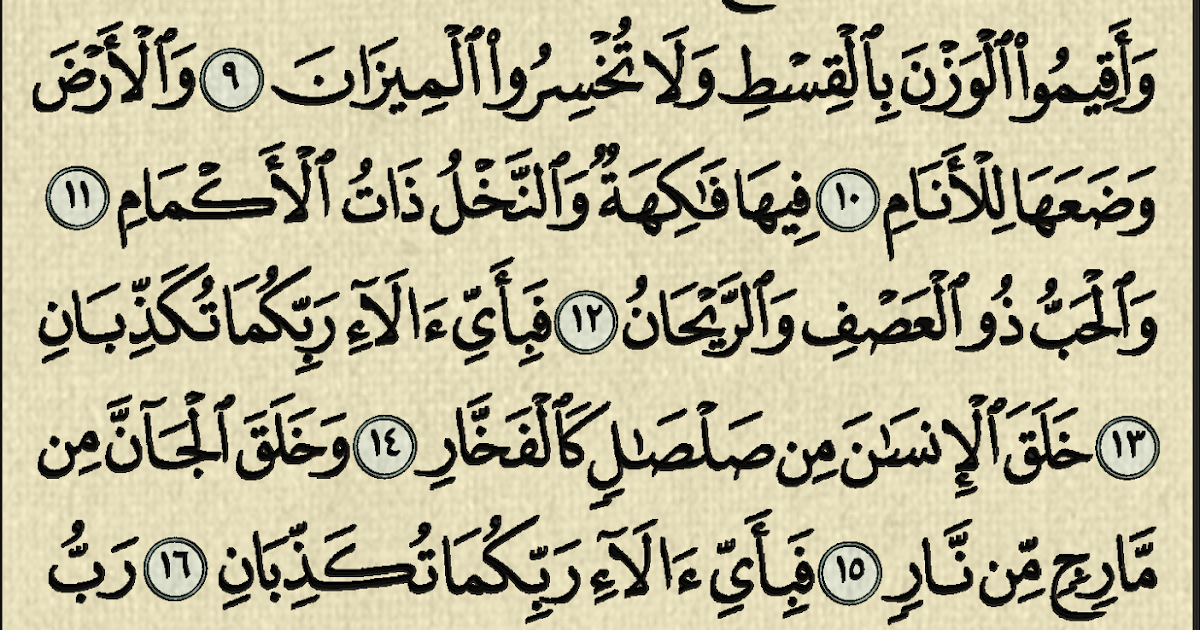 وَأَقِيمُوا۟ ٱلْوَزْنَ بِٱلْقِسْطِ وَلَا تُخْسِرُوا۟ ٱلْمِيزَانَ ٩ وَٱلْأَرْضَ
وَضَعَهَا لِلْأَنَامِ ١٠ فِيهَا فَـٰكِهَةٌ وَٱلنَّخْلُ ذَاتُ ٱلْأَكْمَامِ ١١
وَٱلْحَبُّ ذُو ٱلْعَصْفِ وَٱلرَّيْحَانُ ١٢ فَبِأَيِّ ءَالَآءِ رَبِّكُمَا تُكَذِّبَانِ
١٣ خَلَقَ ٱلْإِنسَـٰنَ مِن صَلْصَـٰلٍ كَٱلْفَخَّارِ ١٤ وَخَلَقَ ٱلْجَآنَّ مِن
مَّارِجٍ مِّن نَّارٍ ١٥ فَبِأَيِّ ءَالَآءِ رَبِّكُمَا تُكَذِّبَانِ ١٦ رَبُّ